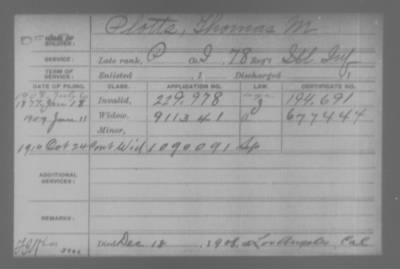 NAME OF SOLDIER: Plotts, Thomas M
SERVICE: Late rank, P Co. I, 78 Reg't Ill Inf
TERM OF SERVICE: Enlisted , 1 Discharged , 1
DATE OF FILING. CLASS. APPLICATION NO. LAW. CERTIFICATE NO.
1877 Jan 18 Invalid, 229.978 194.691
1909 Jan 11 Widow, 911341 677444
Minor,
1916 Oct 24 Cont Wid 1090091
ADDITIONAL SERVICES:
REMARKS:
Died Dec 18, 1908, at Los Angeles Cal